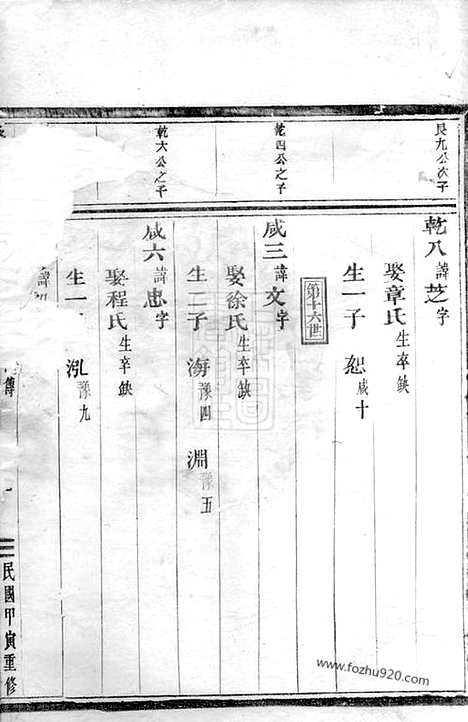 艮九公次子
乾八諱芝字
娶章氏生卒缺
生一子 恕咸十
第十六世
乾四公之子
咸三諱文字
娶徐氏生卒缺
生二子 海豫四 淵豫五
乾六公之子
咸六諱忠字
娶程氏生卒缺
生一 泓豫九
諱
傳
民國甲寅重修
www.fozhu920.com